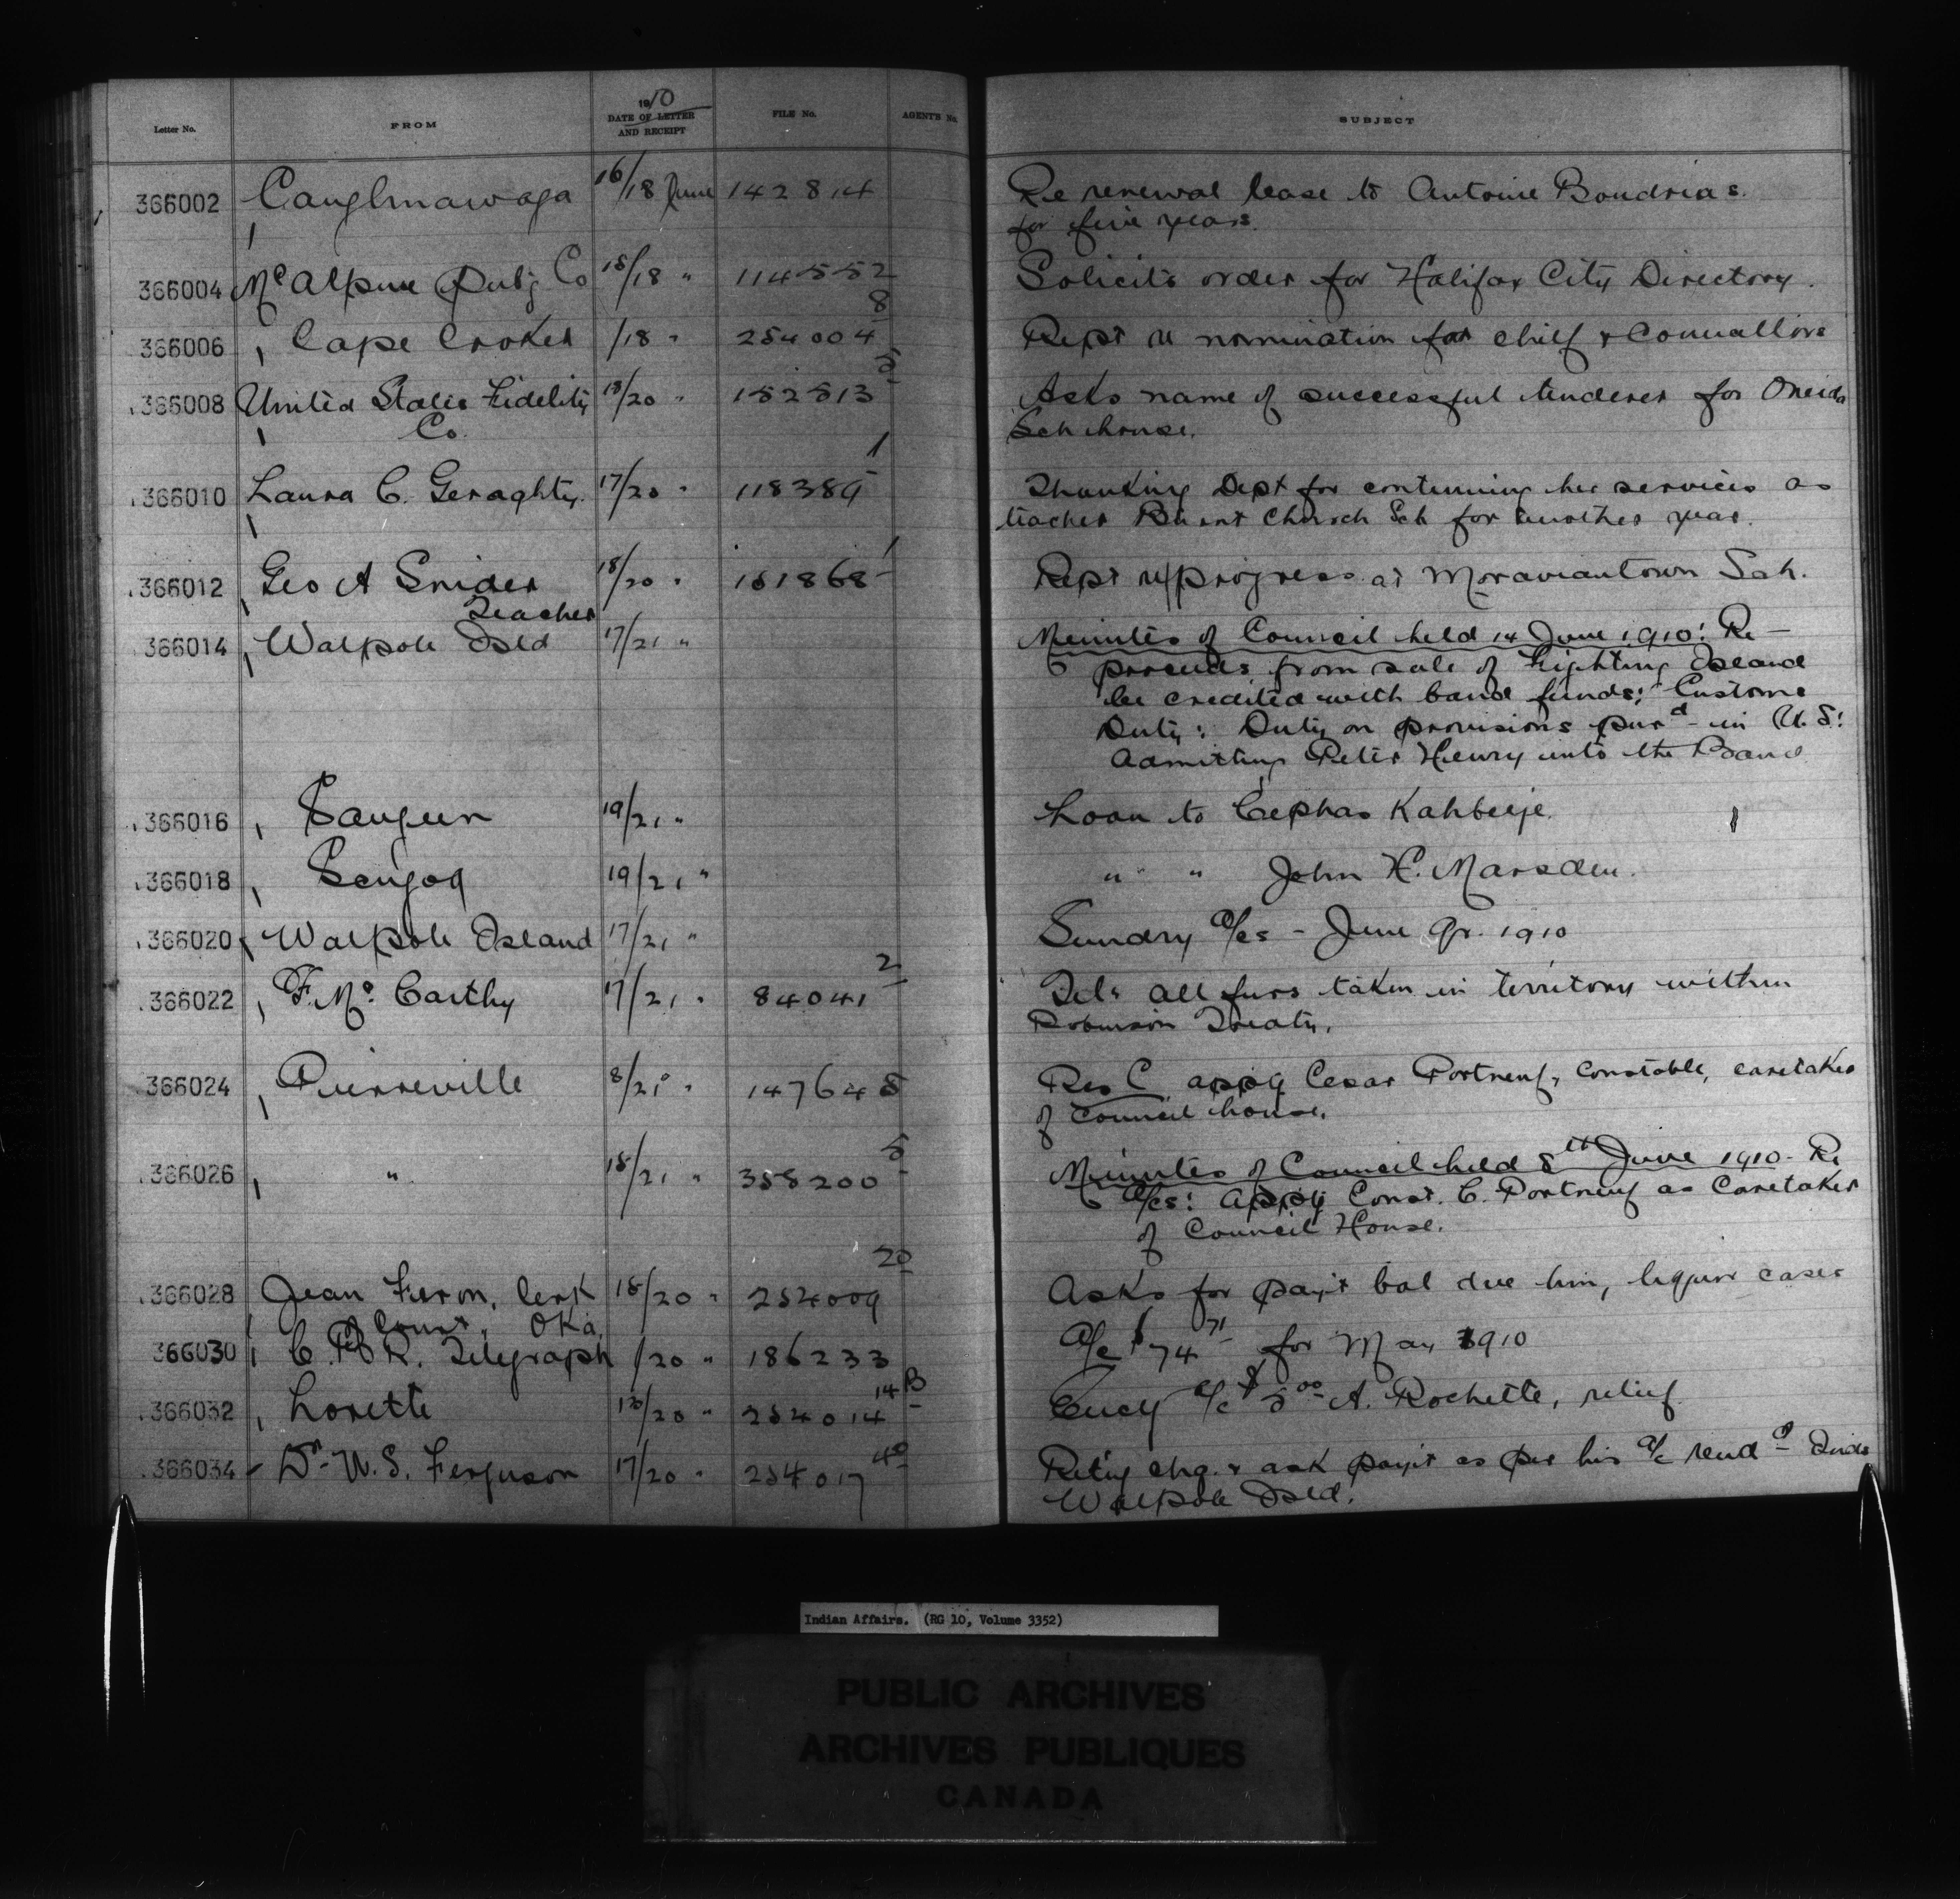 Letter No. FROM 1910 DATE OF LETTER AND RECEIPT FILE No. AGENT'S No. SUBJECT
366002 Caughnawaga 16/18 June 142814 Re renewal lease to Antoine Boudrias
for five years.
366004 McAlpine Pubg Co 18/18 " 114552 Solicits order for Halifax City Directory.
366006 Cape Croker /18 " 254004 8 Rept re nomination for chief & Councillors
366008 United States Fidelity 18/20 " 152513 5 Asks name of successful tenderer for Oneida
Co. Sch house.
366010 Laura C. Geraghty. 17/20 " 118389 1 Thanking Dept for continuing her services as
teacher Burnt Church Sch for another year.
366012 Geo A Snider 18/20 " 151868 1 Rept re progress at Moraviantown Sch.
Teacher
366014 Walpole Isld 17/21 " Minutes of Council held 14 June 1910: Re -
proceeds from sale of Fighting Island
be credited with band funds: Customs
Duty: Duty on provisions purd in U.S:
Admitting Peter Henry into the Band
366016 Saugeen 19/21 " Loan to Cephas Kahbeeje.
366018 Scugog 19/21 " " " John H. Marsden.
366020 Walpole Island 17/21 " Sundry a/cs - June Qr. 1910
366022 F. Mc Carthy 17/21 " 84041 2 Tel. all furs taken in territory within
Robinson Treaty.
366024 Pierreville 8/21 " 147645 Res C appg Cesar Portneuf, constable, caretaker
of council house.
366026 " 18/21 " 358200 5 Minutes of Council held 8th June 1910 - Re
a/cs: appg Const. C. Portneuf as Caretaker
of Council House.
366028 Jean Feron, Clerk 18/20 " 254009 20 Asks for pay't bal due him, liquor cases
of Court, Oka.
366030 C.P.R. Telegraph /20 " 186233 A/c $74 71 for May 1910
366032 Lorette 18/20 " 254014 14 B Encg a/c $5 00 A. Rochette, relief
366034 Dr W.S. Ferguson 17/20 " 254017 40 Retig chq. & ask pay't as per his a/c rend d Inds
Walpole Isld.
Indian Affairs. (RG 10, Volume 3352)
PUBLIC ARCHIVES
ARCHIVES PUBLIQUES
CANADA